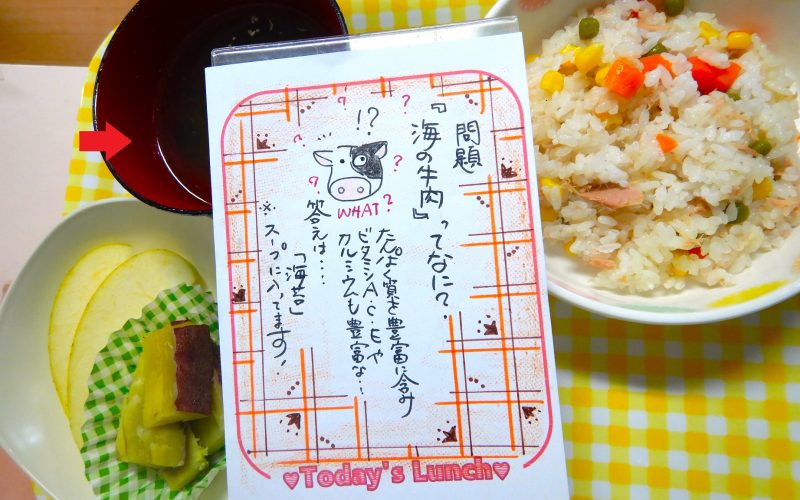 問題
『海の牛肉』ってなに?
!?
WHAT?
たんぱく質を豊富に含み
ビタミンA・C・Eや
カルシウムも豊富な…
答えは…
「海苔」
※スープに入ってます!
♥Today's Lunch♥